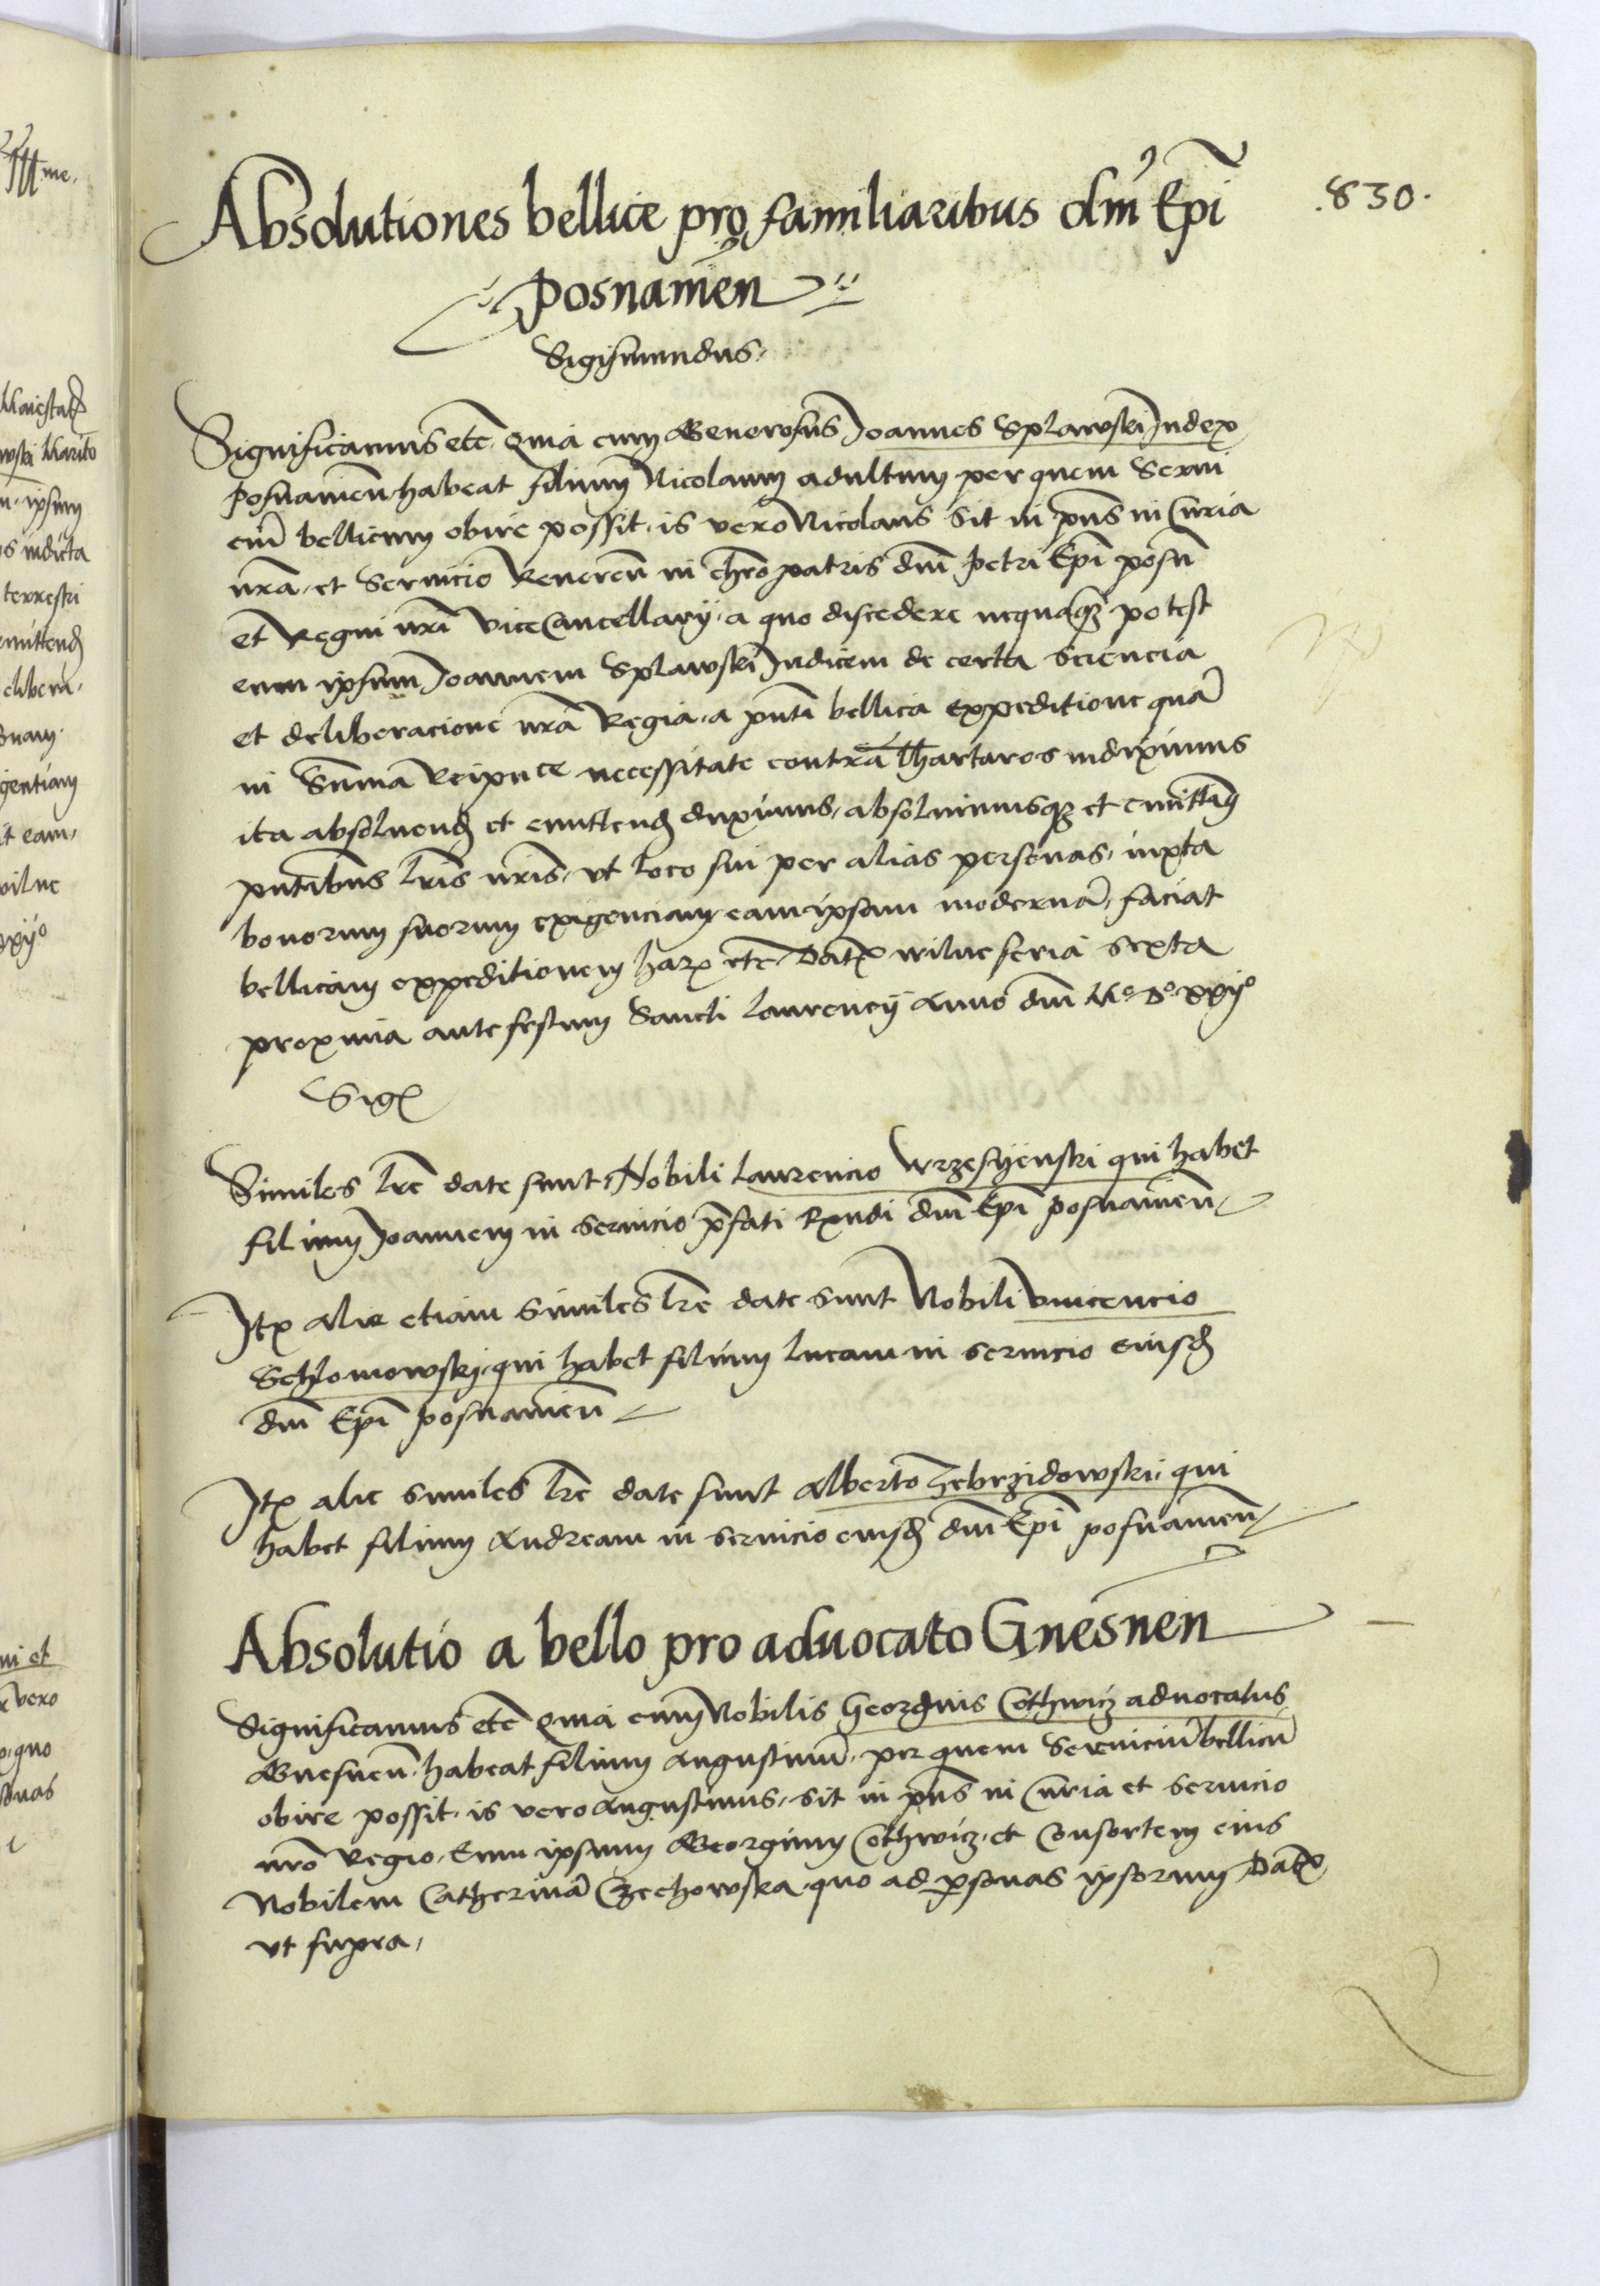 .830.
Absolutiones bellice pro familiaribus dni Epi
Posnanien
Sigismundus
Significamus etc. Quia cum Generosus Joannes Splawski Judex
Posnanien habeat filium Nicolaum adultum per quem Servi
cium bellicum obire possit, is vero Nicolaus sit in pns in Curia
nra, et Servicio Reveren in chro patris dni Petri Epi posn
et Regni nri ViceCancellarii, a quo discedere nequaq potest
eum ipsum Joannem Splawski Judicem de certa sciencia
et deliberacione nra Regia, a pnti bellica expeditione qua
in Summa Reipuce necessitate contra Thartaros indiximus
ita absolvend et emittend duximus, absolvimusq et emittim
pntibus lris nris, ut loco sui per alias personas, iuxta
bonorum suorum exigenciam, eam ipsam moderna, faciat
bellicam expeditionem har etc. Dat wilne feria sexta
proxima ante festum Sancti Laurencii Anno dni Mo. Do. xxijo
Sig
Similes lre date sunt Nobili Laurencio Wrzesyenski qui habet
filium Joannem in servicio pfati Rxndi dni Epi posnanien
Jt alie etiam similes lre date sunt Nobili Vincencio
Schlomowski, qui habet filium Lucam in servicio eiusd
dni Epi posnanien
Jt alie similes lre date sunt Alberto Zebrzidowski, qui
habet filium Andream in servicio eiusd dni Epi posnanien
Absolutio a bello pro advocato Gnesnen
Significamus etc Quia cum Nobilis Georgius Cothwicz advocatus
Gnesnen, habeat filium Augustinu, per quem Serviciu bellicu
obire possit, is vero Augustinus, sit in pns in Curia et servicio
nro Regio, Eum ipsum Georgium Cothwicz, et Consortem eius
Nobilem Catherina Czechowska, quo ad psonas ipsorum Dat
ut supra,